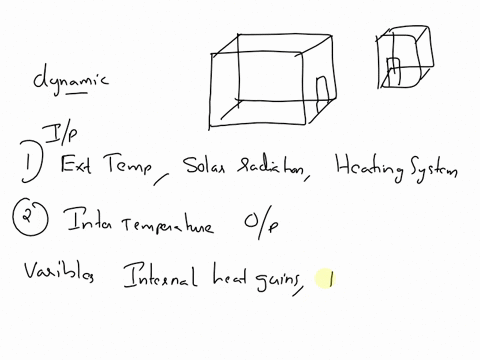 dynamic
I/p
1) Ext Temp, Solar radiation, Heating System
2 Inter Temperature O/p
Varibles Internal heat gains,